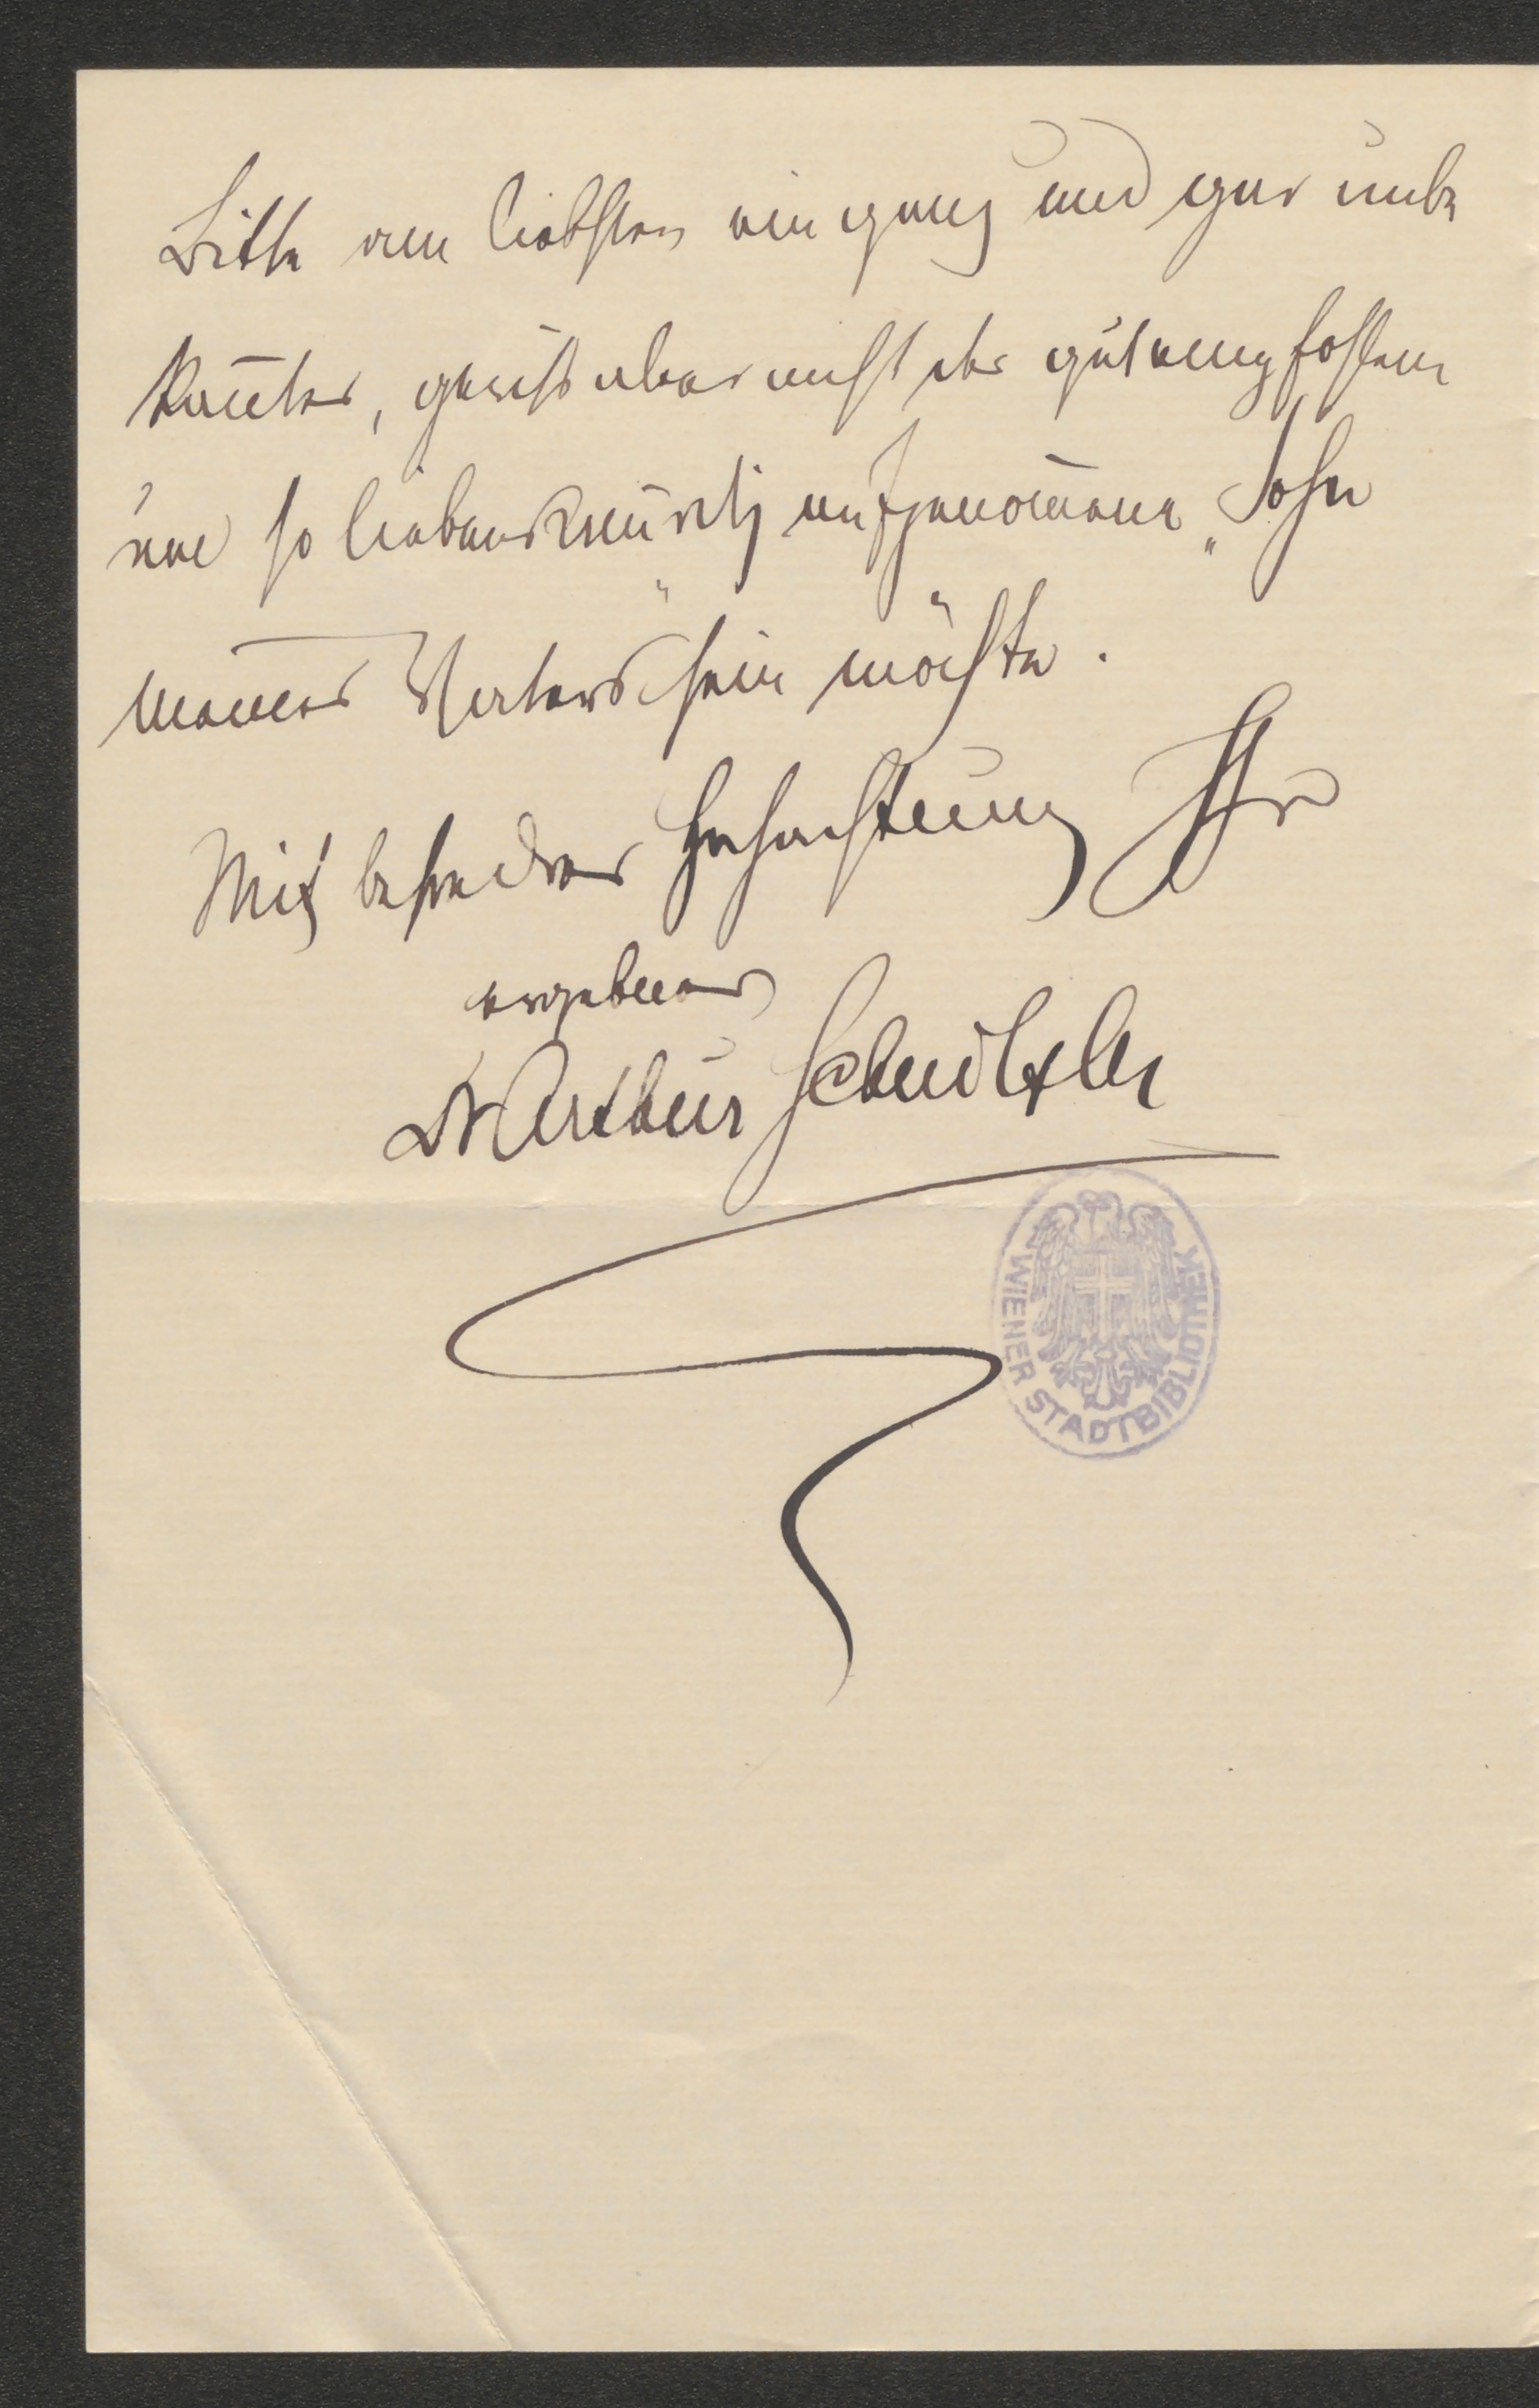 Bitte am liebsten ein ganz und gar unbe
kannter, gewiß aber nicht der gut empfohlene
und so liebenswürdig aufgenommene „Sohn
meines Vaters“ sein möchte.
Mit besondrer Hochachtung Ihr
ergebner
Dr Arthur Schnitzler
WIENER STADTBIBLIOTHEK